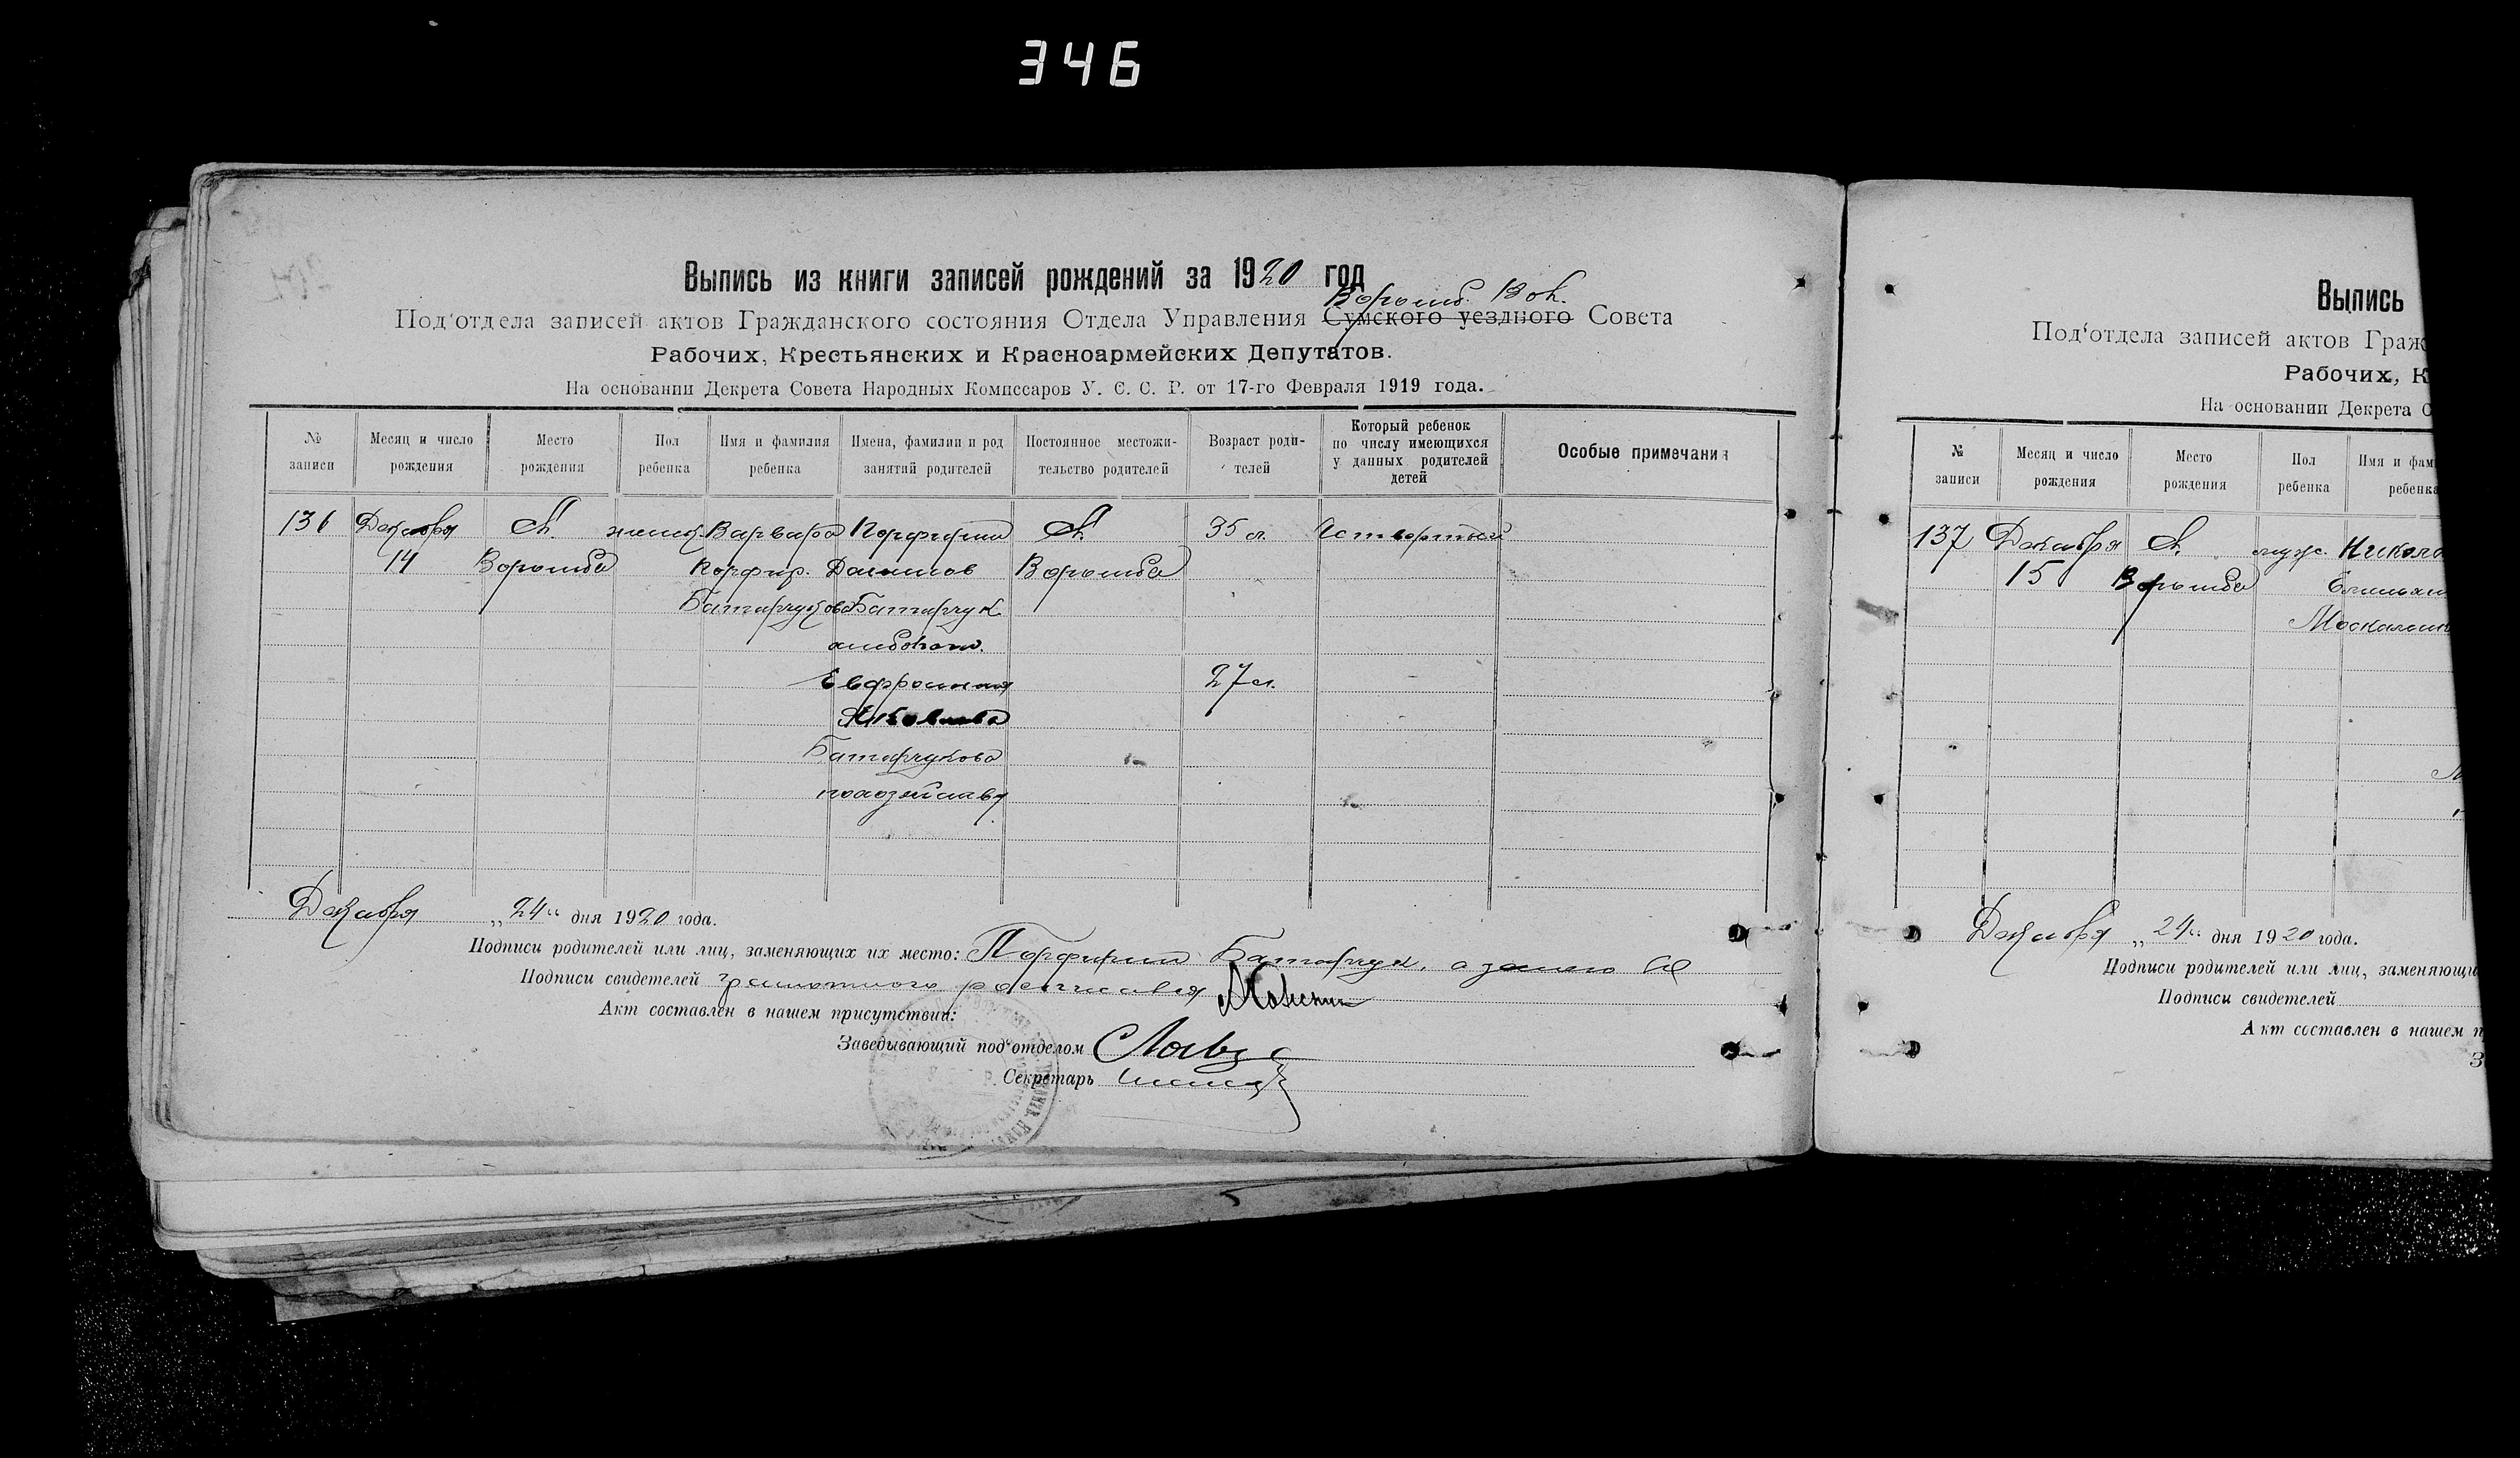 346
Выпись из книги записей рождений за 1920 год
Ворожб. Вол.
Под'отдела записей актов Гражданского состояния Отдела Управления Сумского уездного Совета
Рабочих, Крестьянских и Красноармейских Депутатов.
На основании Декрета Совета Народных Комиссаров У. С. С. Р. от 17-го Февраля 1919 года.
№ записи
Месяц и число рождения
Место рождения
Пол ребенка
Имя и фамилия ребенка
Имена, фамилии и род занятий родителей
Постоянное местожительство родителей
Возраст родителей
Который ребенок по числу имеющихся у данных родителей детей
Особые примечания
136 Декабря С. женск. Варвара Порфирий С. 35 л. Четвертый
14 Ворожба Порфир. Ворожба
Батарчукова Батарчук
хлебопаш.
Евфросиния 27 л.
Яковлева
Батарчукова
Декабря „24" дня 1920 года.
Подписи родителей или лиц, заменяющих их место: Порфирий Батарчук, а за него не
Подписи свидетелей грамотного росписался
Акт составлен в нашем присутствии:
Заведывающий под'отделом
Секретарь
Выпись
Под'отдела записей актов Граж
Рабочих, К
На основании Декрета С
№ записи
Месяц и число рождения
Место рождения
Пол ребенка
Имя и фам
ребенка
137 Декабря С. муж. Никола
15 Ворожба Емельян
Москаленк
Декабря „24" дня 1920 года.
Подписи родителей или лиц, заменяющи
Подписи свидетелей
Акт составлен в нашем п
З